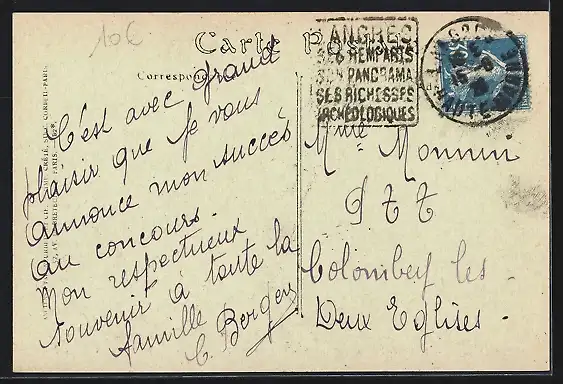 10€
Carte Postale
Correspondance
LANGRES
SES REMPARTS
SON PANORAMA
SES RICHESSES
ARCHÉOLOGIQUES
C'est avec grand
plaisir que je vous
annonce mon succès
au concours.
Mon respectueux
souvenir à toute la
famille
C. Berger
Mme Monnin
PTT
Colombey les
Deux Eglises.